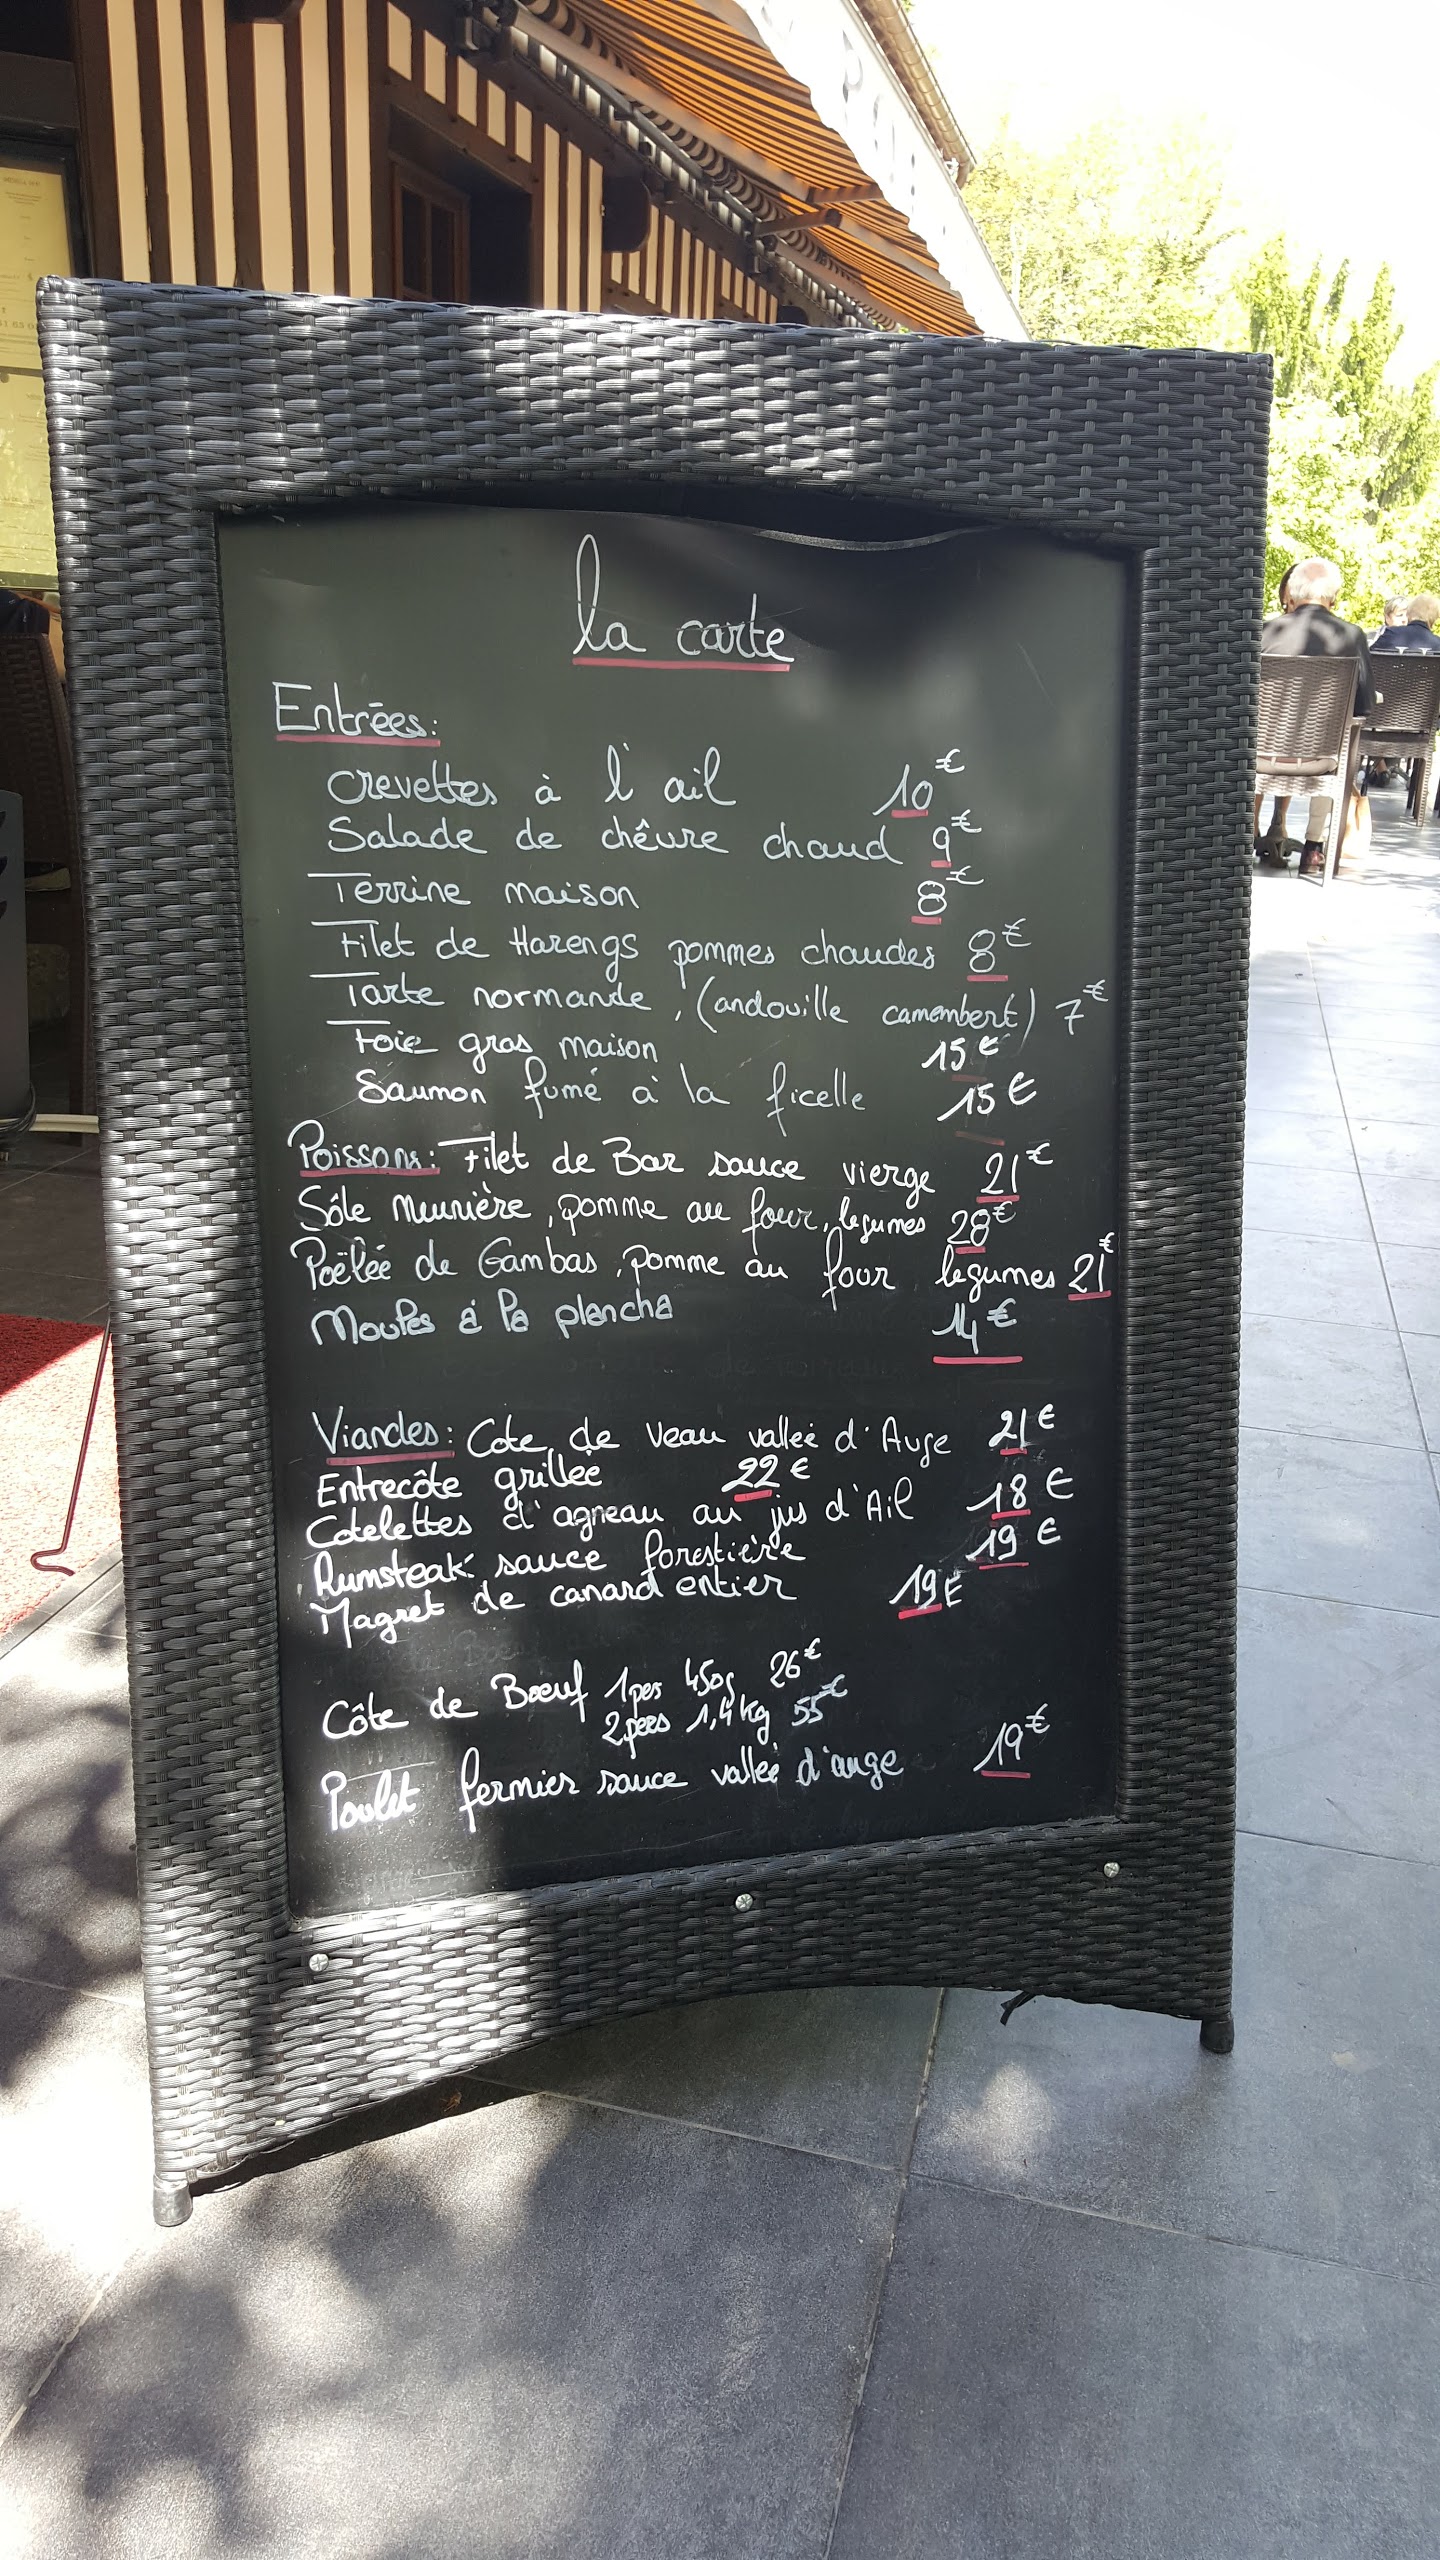 la carte
Entrées:
Crevettes à l'ail 10€
Salade de chêvre chaud 9€
Terrine maison 8€
Filet de Harengs pommes chaudes 8€
Tarte normande, (andouille camembert) 7€
Foie gras maison 15€
Saumon fumé à la ficelle 15€
Poissons: Filet de Bar sauce vierge 21€
Sôle Meunière, pomme au four, legumes 28€
Poëlée de Gambas, pomme au four, legumes 21€
Moules à la plancha 14€
Viandes: Cote de Veau vallée d'Auge 21€
Entrecôte grillée 22€
Cotelettes d'agneau au jus d'Ail 18€
Rumsteak sauce forestière 19€
Magret de canard entier 19€
Côte de Boeuf 1pers 450g 26€
2pers 1,4kg 55€
Poulet fermier sauce vallée d'auge 19€